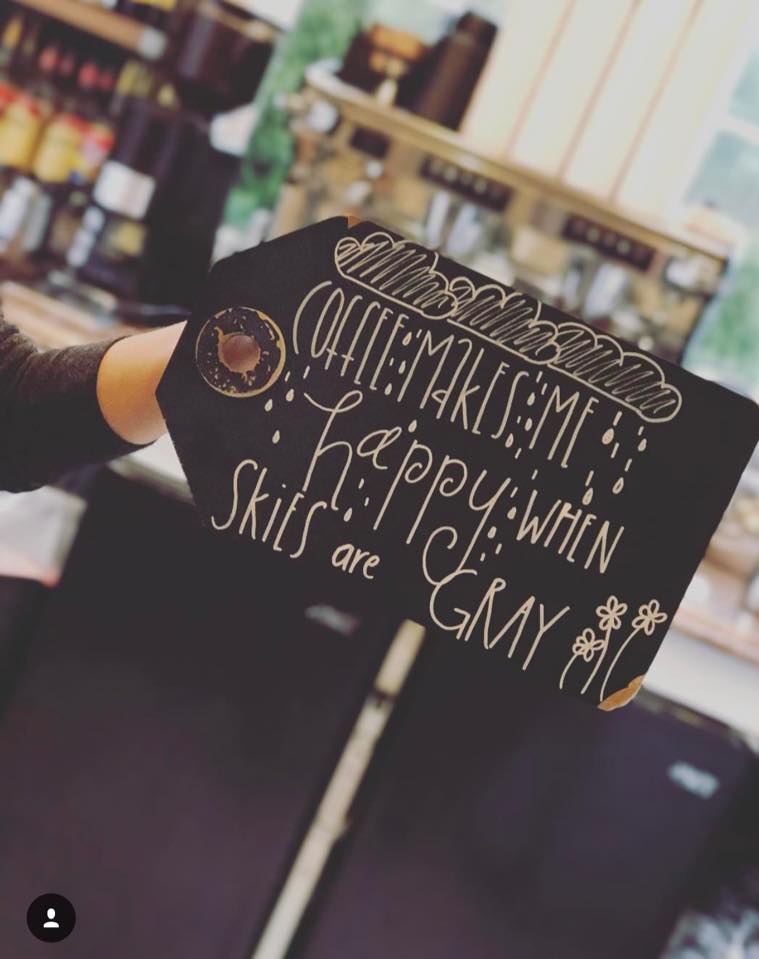 COFFEE MAKES ME
happy WHEN
SKiES are GRAY